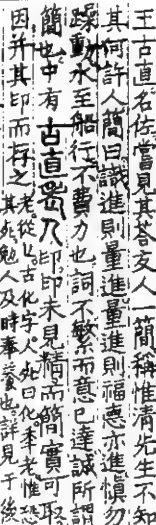 王古直名佐嘗見其荅友人一簡稱惟清先生不知
其何許人簡曰識進則量進量進則福德亦進慎勿
躁動水至船行不費力也詞不繁而意已達誠所謂
簡也中有古直老人印印未見精而簡實可取
因并其印而存之老從匕古化字人死曰化李老惟恐
其死勉人及時養也詳見于後